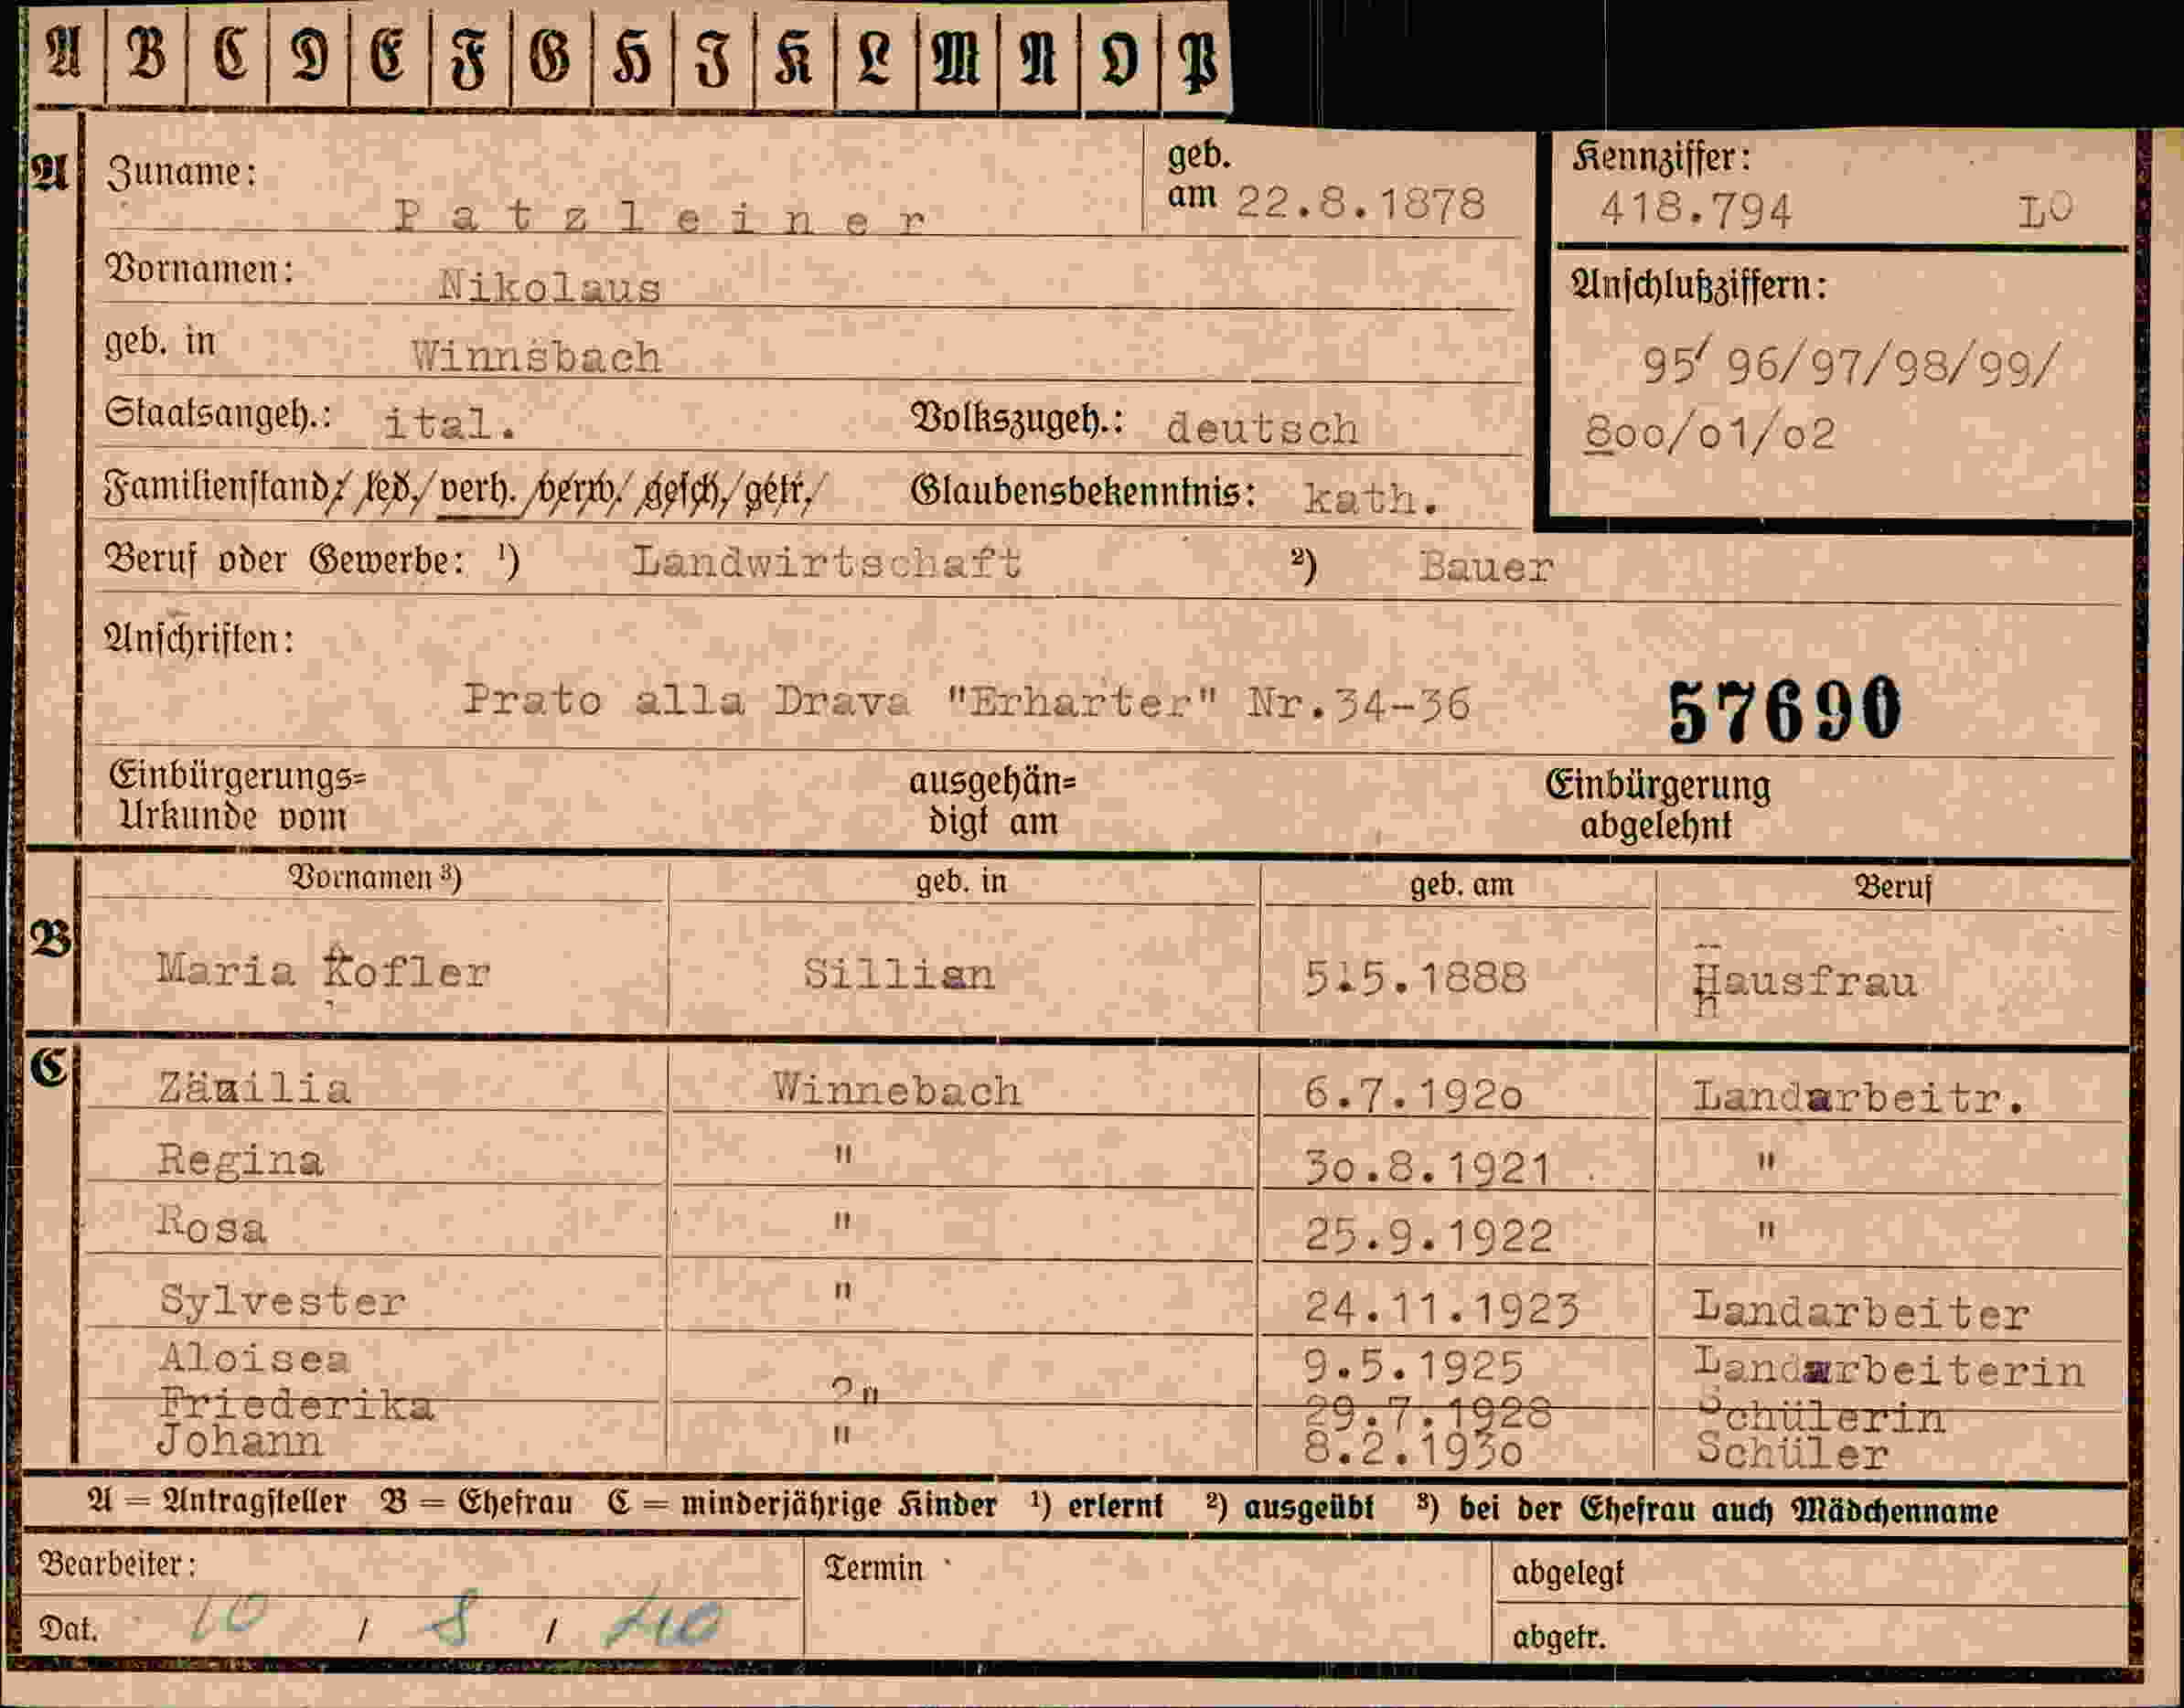 A B C D E F G H I K L M N O P
A Zuname: Patzleiner geb. am 22.8.1878
Kennziffer: 418.794 LO
Vornamen: Nikolaus
Anschlußziffern:
geb. in Winnsbach
95/96/97/98/99/
Staatsangeh.: ital. Volkszugeh.: deutsch
800/01/02
Familienstand: led./verh./verw./gesch./getr./ Glaubensbekenntnis: kath.
Beruf oder Gewerbe: ¹) Landwirtschaft ²) Bauer
Anschriften:
Prato alla Drava "Erharter" Nr.34-36 57690
Einbürgerungs= ausgehän= Einbürgerung
Urkunde vom digt am abgelehnt
Vornamen ³) geb. in geb. am Beruf
B Maria Kofler Sillian 5.5.1888 Hausfrau
C Zäzilia Winnebach 6.7.1920 Landarbeitr.
Regina " 30.8.1921 "
Rosa " 25.9.1922 "
Sylvester " 24.11.1923 Landarbeiter
Aloisea " 9.5.1925 Landarbeiterin
Friederika 29.7.1928 Schülerin
Johann " 8.2.1930 Schüler
A = Antragsteller B = Ehefrau C = minderjährige Kinder ¹) erlernt ²) ausgeübt ³) bei der Ehefrau auch Mädchenname
Bearbeiter: Termin abgelegt
Dat. 10 / 8 / 40 abgetr.